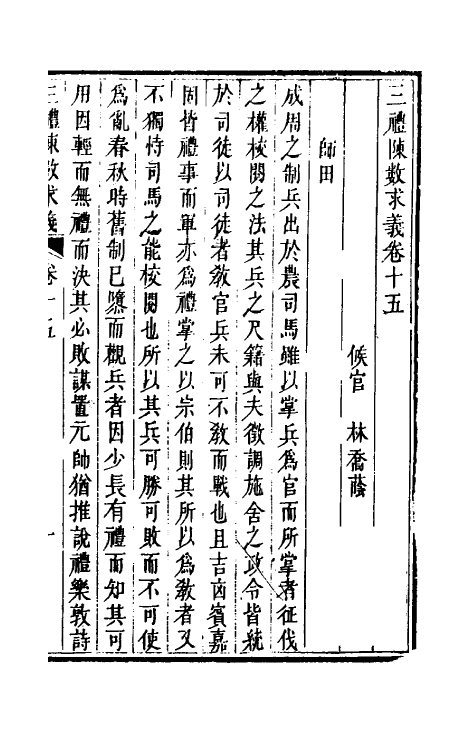 三禮陳數求義卷十五
候官　林喬蔭
師田
成周之制兵出於農司馬雖以掌兵爲官而所掌者征伐
之權校閱之法其兵之尺籍與夫徵調施舍之政令皆統
於司徒以司徒者敎官兵未可不敎而戰也且吉凶賓嘉
固皆禮事而軍亦爲禮掌之以宗伯則其所以爲敎者又
不獨恃司馬之能校閱也所以其兵可勝可敗而不可使
爲亂春秋時舊制已隳而觀兵者因少長有禮而知其可
用因輕而無禮而決其必敗謀置元帥猶推說禮樂敦詩
三禮陳數求義　卷十五　一